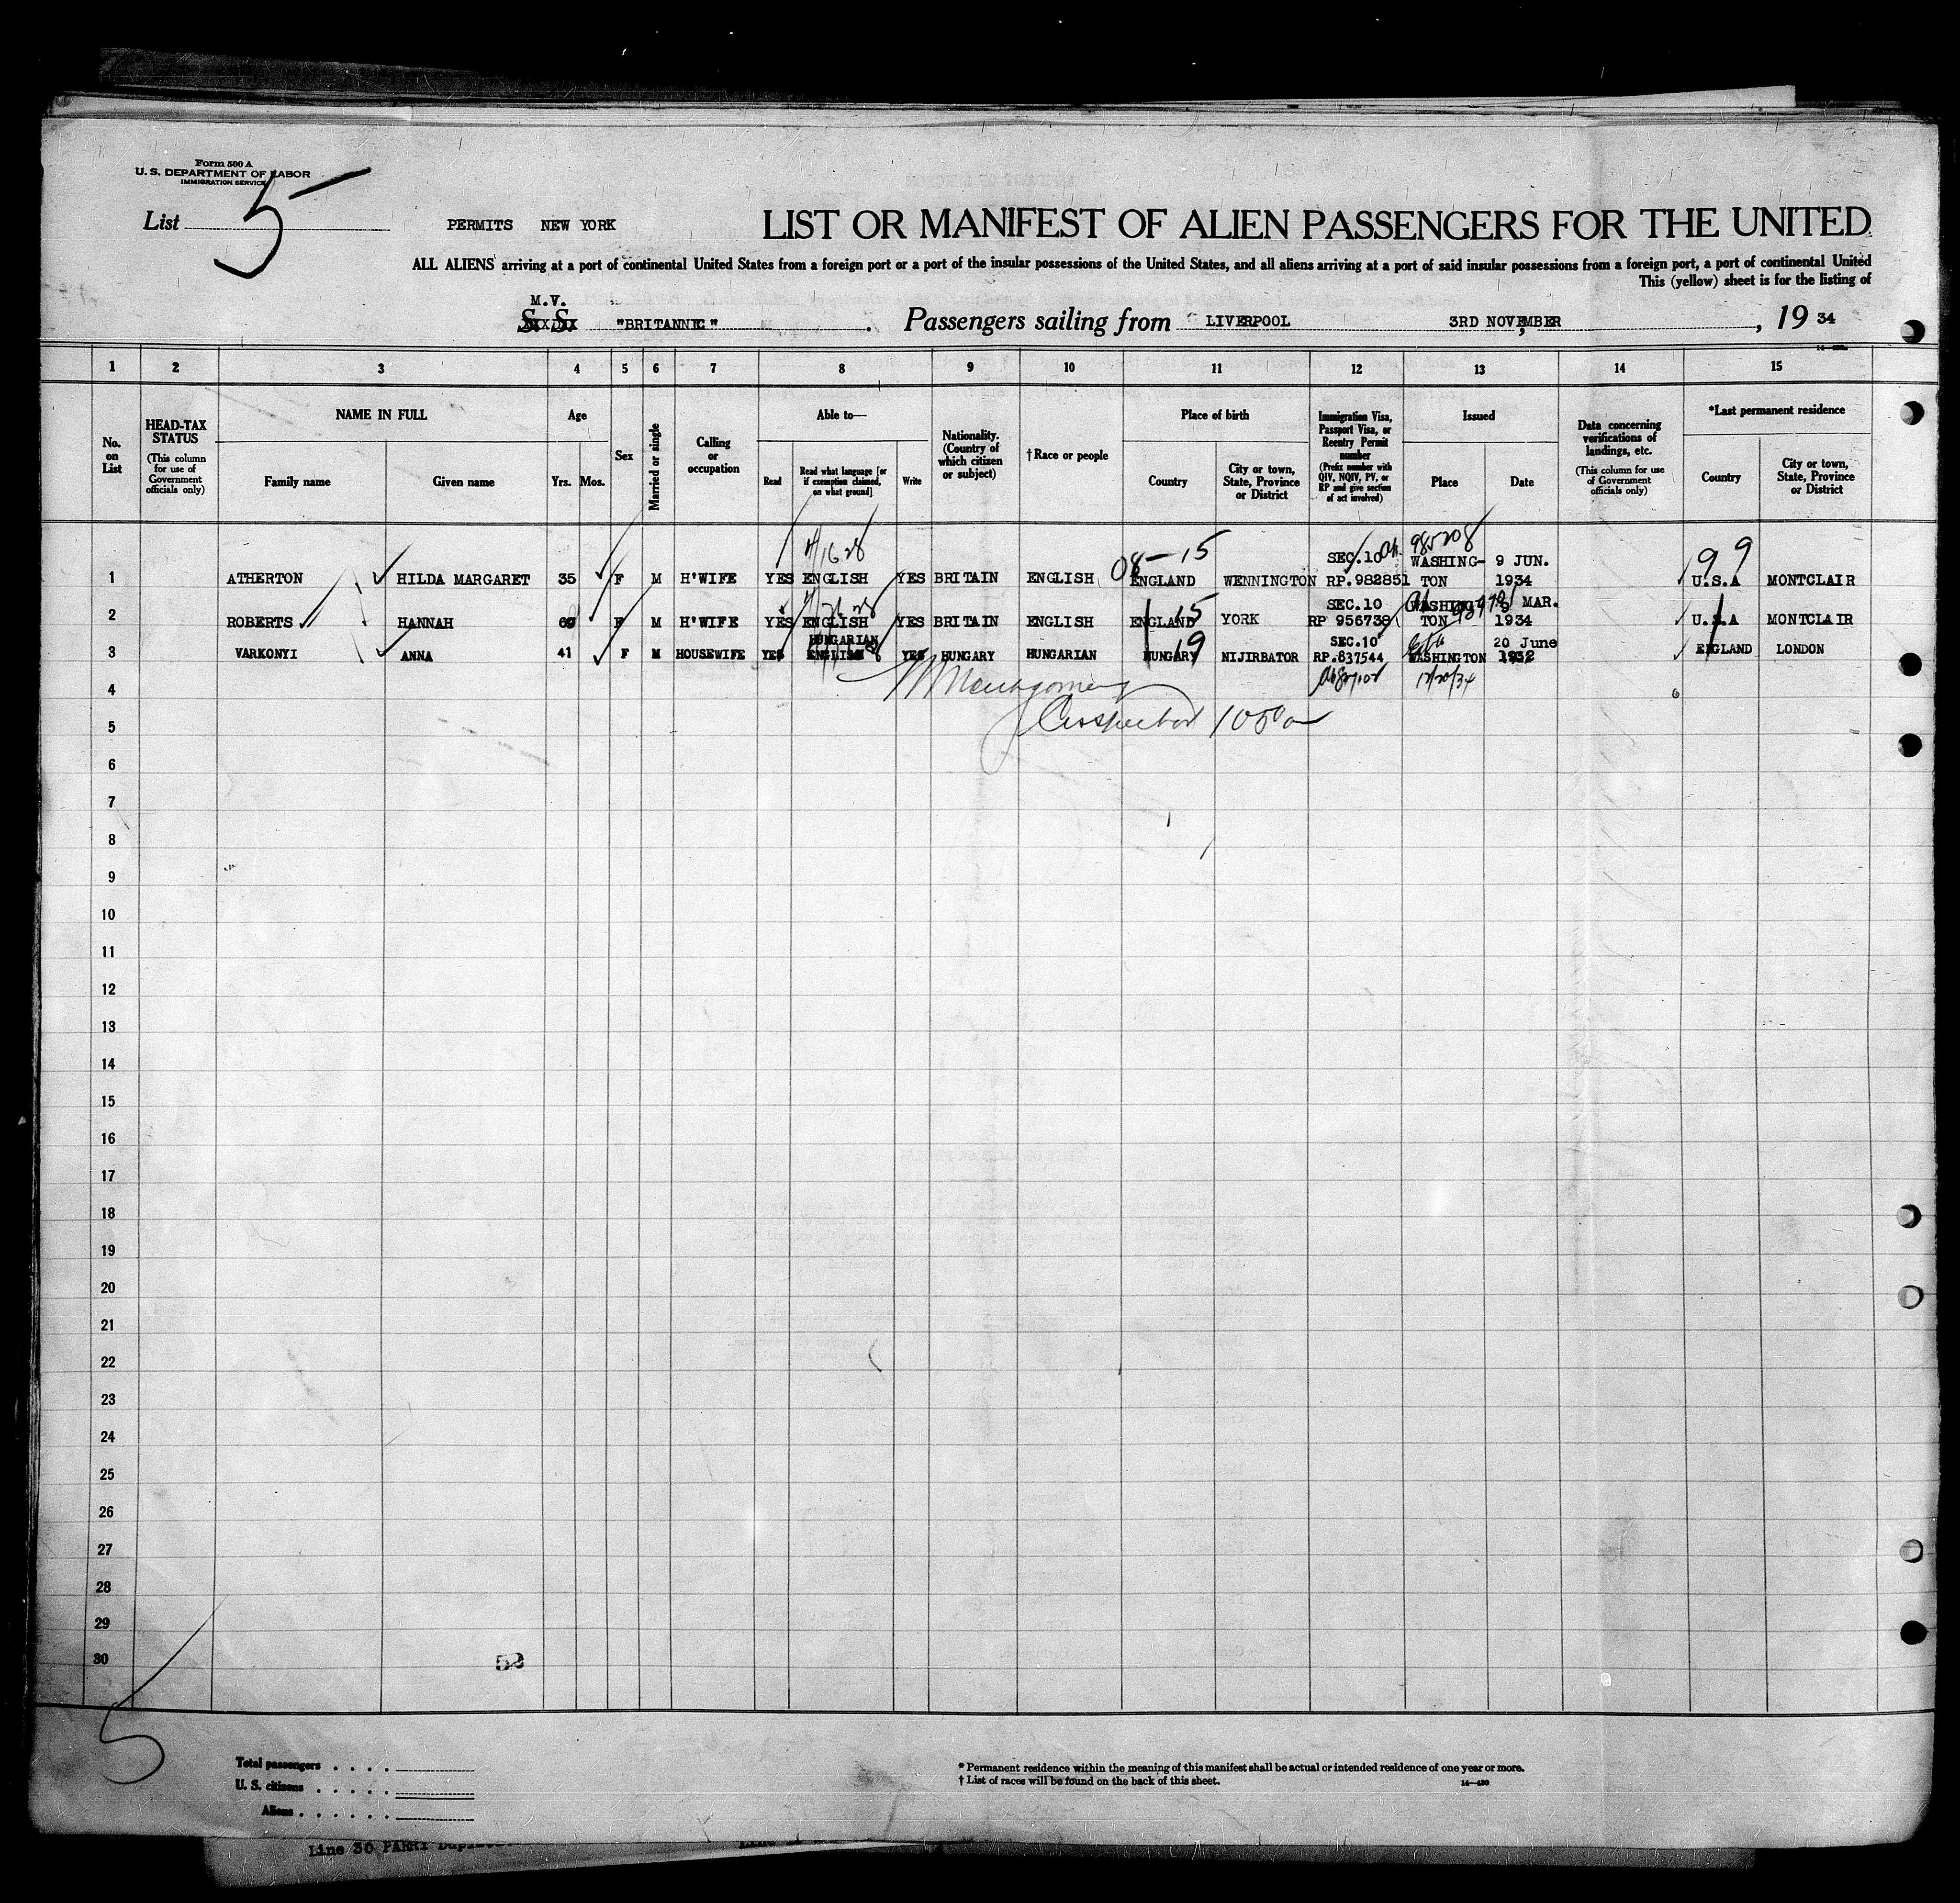 Form 500 A
U. S. DEPARTMENT OF LABOR
IMMIGRATION SERVICE
List 5
PERMITS NEW YORK
LIST OR MANIFEST OF ALIEN PASSENGERS FOR THE UNITED
ALL ALIENS arriving at a port of continental United States from a foreign port or a port of the insular possessions of the United States, and all aliens arriving at a port of said insular possessions from a foreign port, a port of continental United
This (yellow) sheet is for the listing of
M.V.
S. S. "BRITANNIC" Passengers sailing from LIVERPOOL 3RD NOVEMBER, 19 34
1 2 3 4 5 6 7 8 9 10 11 12 13 14 15
No. on List
HEAD-TAX STATUS
(This column for use of Government officials only)
NAME IN FULL
Family name Given name
Age
Yrs. Mos.
Sex
Married or single
Calling or occupation
Able to—
Read
Read what language [or if exemption claimed, on what ground]
Write
Nationality. (Country of which citizen or subject)
†Race or people
Place of birth
Country
City or town, State, Province or District
Immigration Visa, Passport Visa, or Reentry Permit number
(Prefix number with QIV, NQIV, PV, or RP and give section of act involved)
Issued
Place Date
Data concerning verifications of landings, etc.
(This column for use of Government officials only)
*Last permanent residence
Country
City or town, State, Province or District
08-15 985208 99
SEC.10 WASHING- 9 JUN.
1 ATHERTON HILDA MARGARET 35 F M H'WIFE YES ENGLISH YES BRITAIN ENGLISH ENGLAND WENNINGTON RP.982851 TON 1934 U.S.A MONTCLAIR
SEC.10 WASHING MAR.
2 ROBERTS HANNAH F M H'WIFE YES ENGLISH YES BRITAIN ENGLISH ENGLAND YORK RP 956738 TON 1934 U.S.A MONTCLAIR
HUNGARIAN SEC.10 20 June
3 VARKONYI ANNA 41 F M HOUSEWIFE YES ENGLISH YES HUNGARY HUNGARIAN HUNGARY NIJIRBATOR RP.837544 WASHINGTON 1932 ENGLAND LONDON
4 Montgomery 12/20/34
5 Inspector
6
7
8
9
10
11
12
13
14
15
16
17
18
19
20
21
22
23
24
25
26
27
28
29
30
52
5
Total passengers
U. S. citizens
Aliens
* Permanent residence within the meaning of this manifest shall be actual or intended residence of one year or more.
† List of races will be found on the back of this sheet.
14—430
Line 30 PARRY